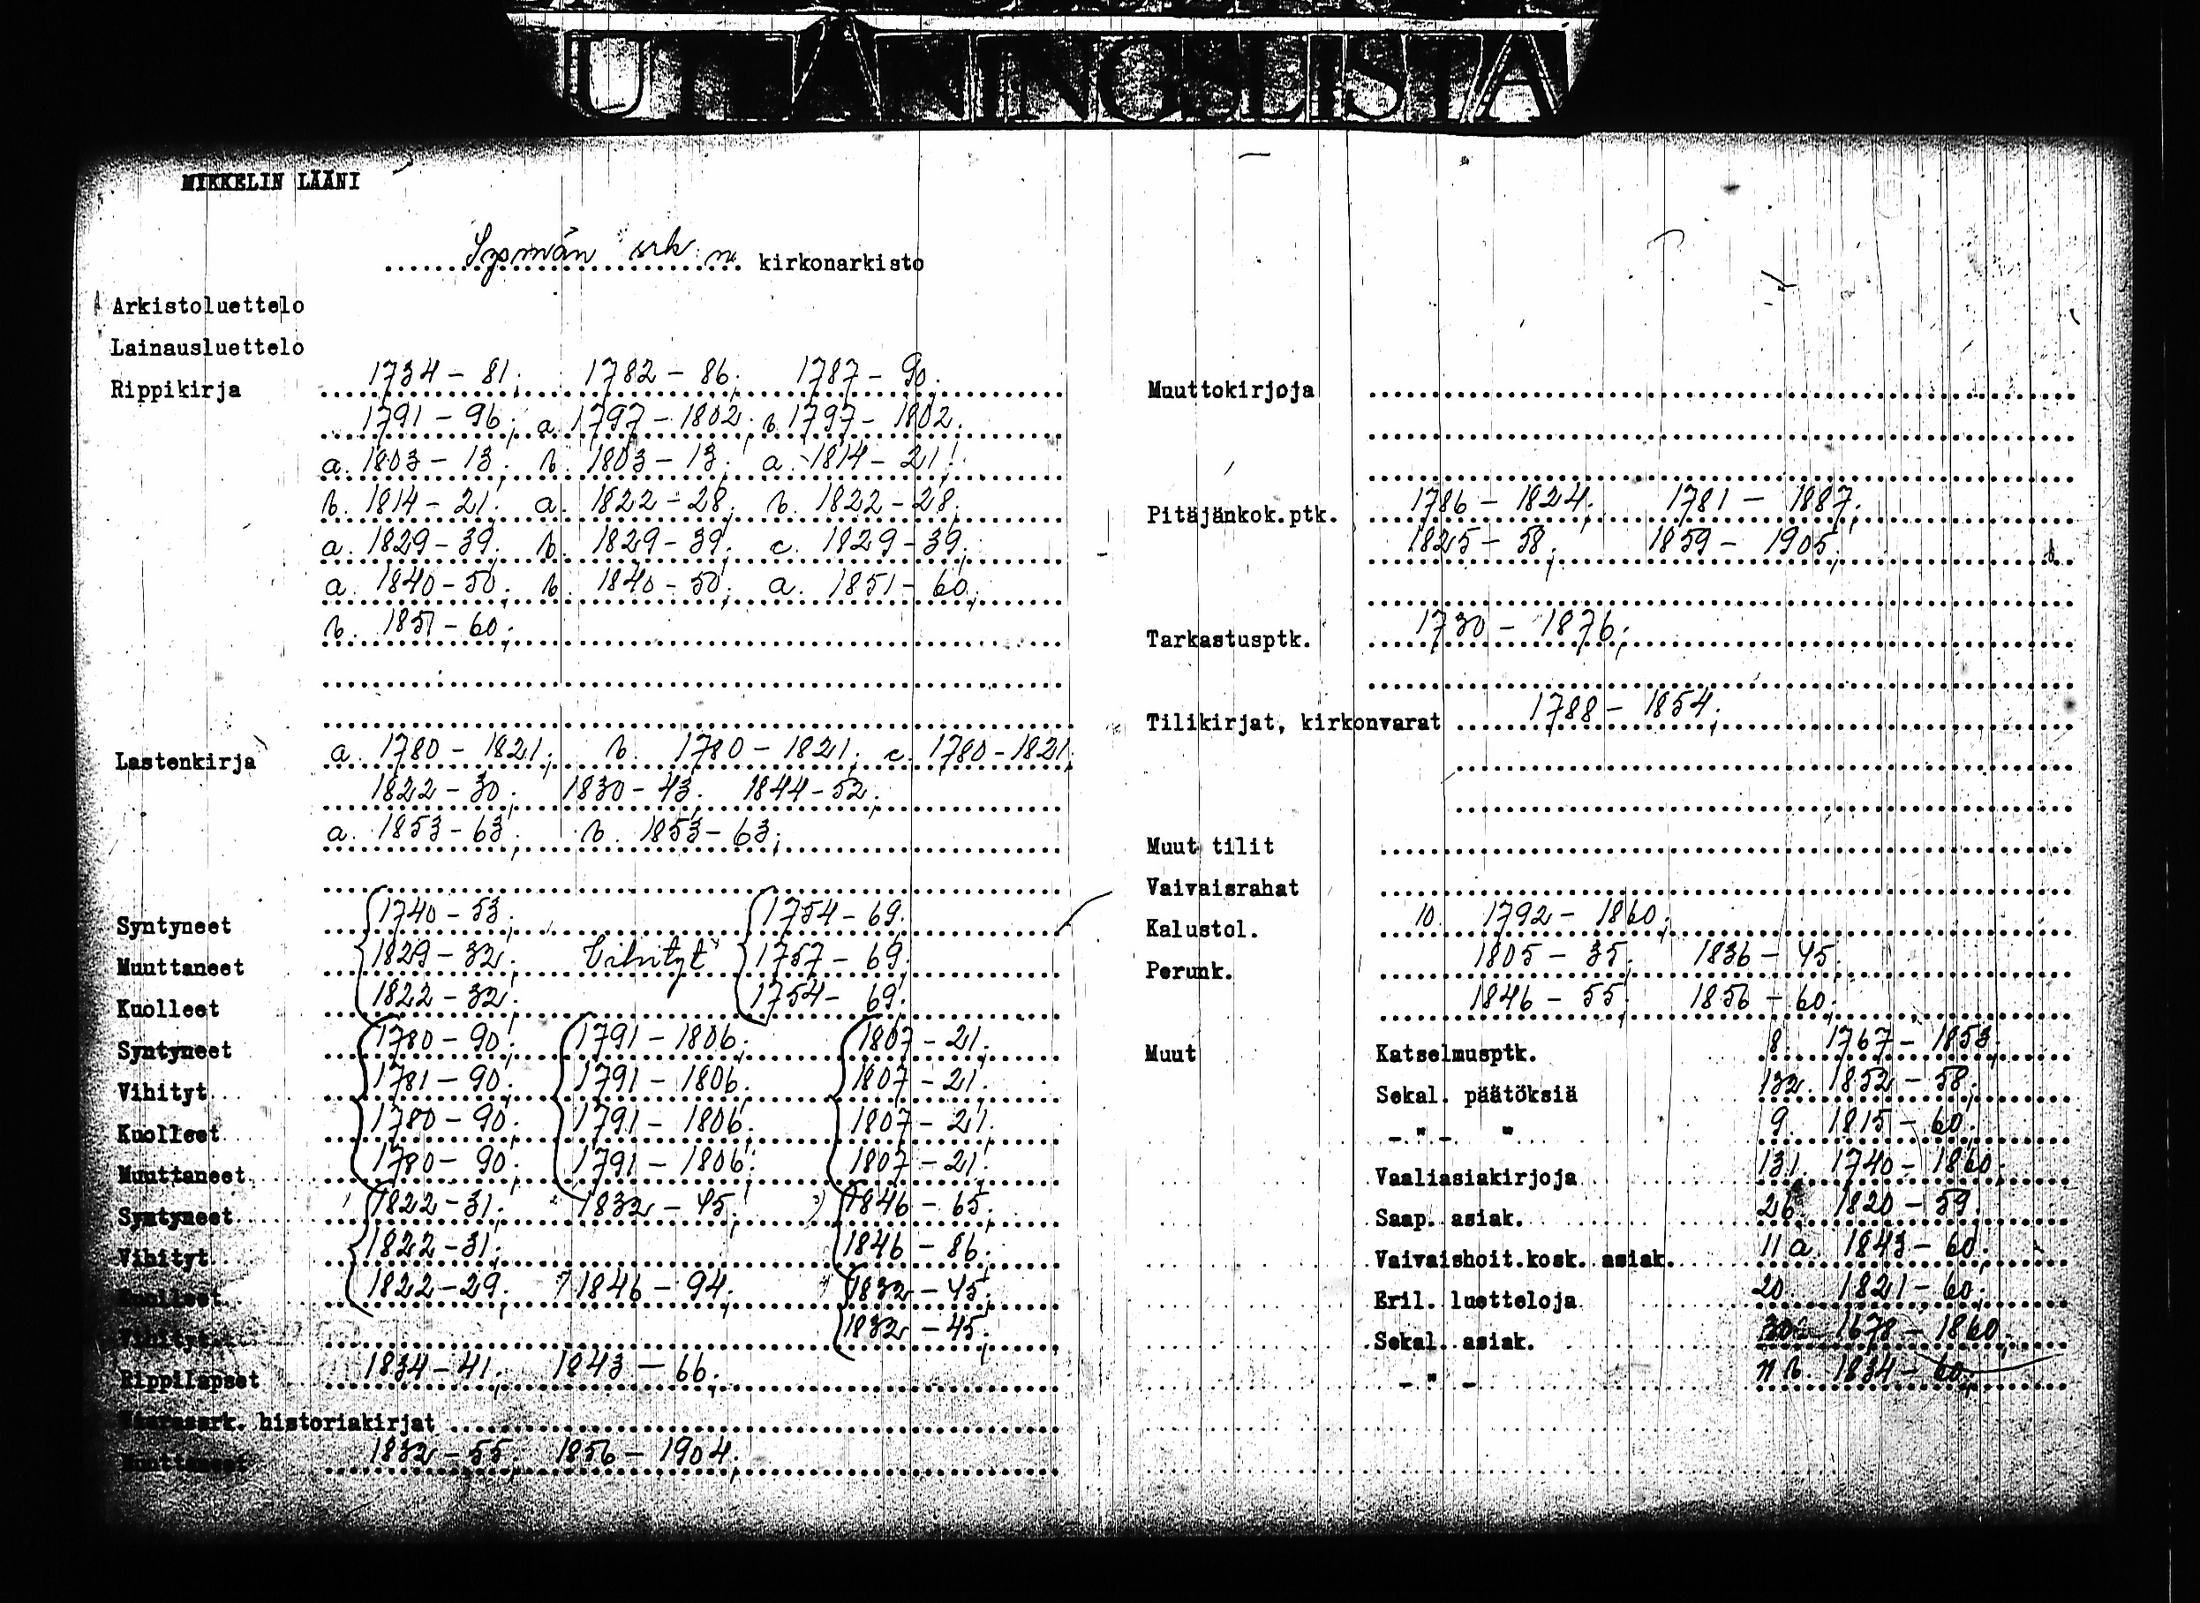 UTTÄNINGSLISTA
MIKKELIN LÄÄNI
Sysmän srk:n kirkonarkisto
Arkistoluettelo
Lainausluettelo
Rippikirja 1734-81; 1782-86; 1787-90.
1791-96; a. 1797-1802; b. 1797-1802.
a. 1803-13; b. 1803-13; a. 1814-21;
b. 1814-21; a. 1822-28; b. 1822-28;
a. 1829-39; b. 1829-39; c. 1829-39;
a. 1840-50; b. 1840-50; a. 1851-60;
b. 1851-60;
Lastenkirja a. 1780-1821; b. 1780-1821; c. 1780-1821;
1822-30; 1830-43; 1844-52;
a. 1853-63; b. 1853-63;
Syntyneet 1740-53; 1754-69;
Muuttaneet 1829-32; Vihityt 1757-69;
Kuolleet 1822-32; 1754-69;
Syntyneet 1780-90; 1791-1806; 1807-21;
Vihityt 1781-90; 1791-1806; 1807-21;
Kuolleet 1780-90; 1791-1806; 1807-21;
Muuttaneet 1780-90; 1791-1806; 1807-21;
Syntyneet 1822-31; 1832-45; 1846-65;
Vihityt 1822-31; 1846-86;
Kuolleet 1822-29; 1846-94; 1832-45;
Vihityt 1832-45;
Rippilapset 1834-41; 1843-66;
historiakirjat
Muuttaneet 1832-55; 1856-1904;
Muuttokirjoja
Pitäjänkok.ptk. 1786-1824; 1781-1887;
1825-58; 1859-1905;
Tarkastusptk. 1730-1876;
Tilikirjat, kirkonvarat 1788-1854;
Muut tilit
Vaivaisrahat
Kalustol. 10. 1792-1860;
Perunk. 1805-35; 1836-45;
1846-55; 1856-60;
Muut Katselmusptk. 8. 1767-1853;
Sekal. päätöksiä 132. 1852-58;
-"- " 9. 1815-60;
Vaaliasiakirjoja 131. 1740-1860;
Saap. asiak. 26. 1820-59;
Vaivaishoit.kosk. asiak. 11 a. 1843-60;
Eril. luetteloja 20. 1821-60;
Sekal. asiak. 1678-1860;
-"- 11 b. 1834-60;